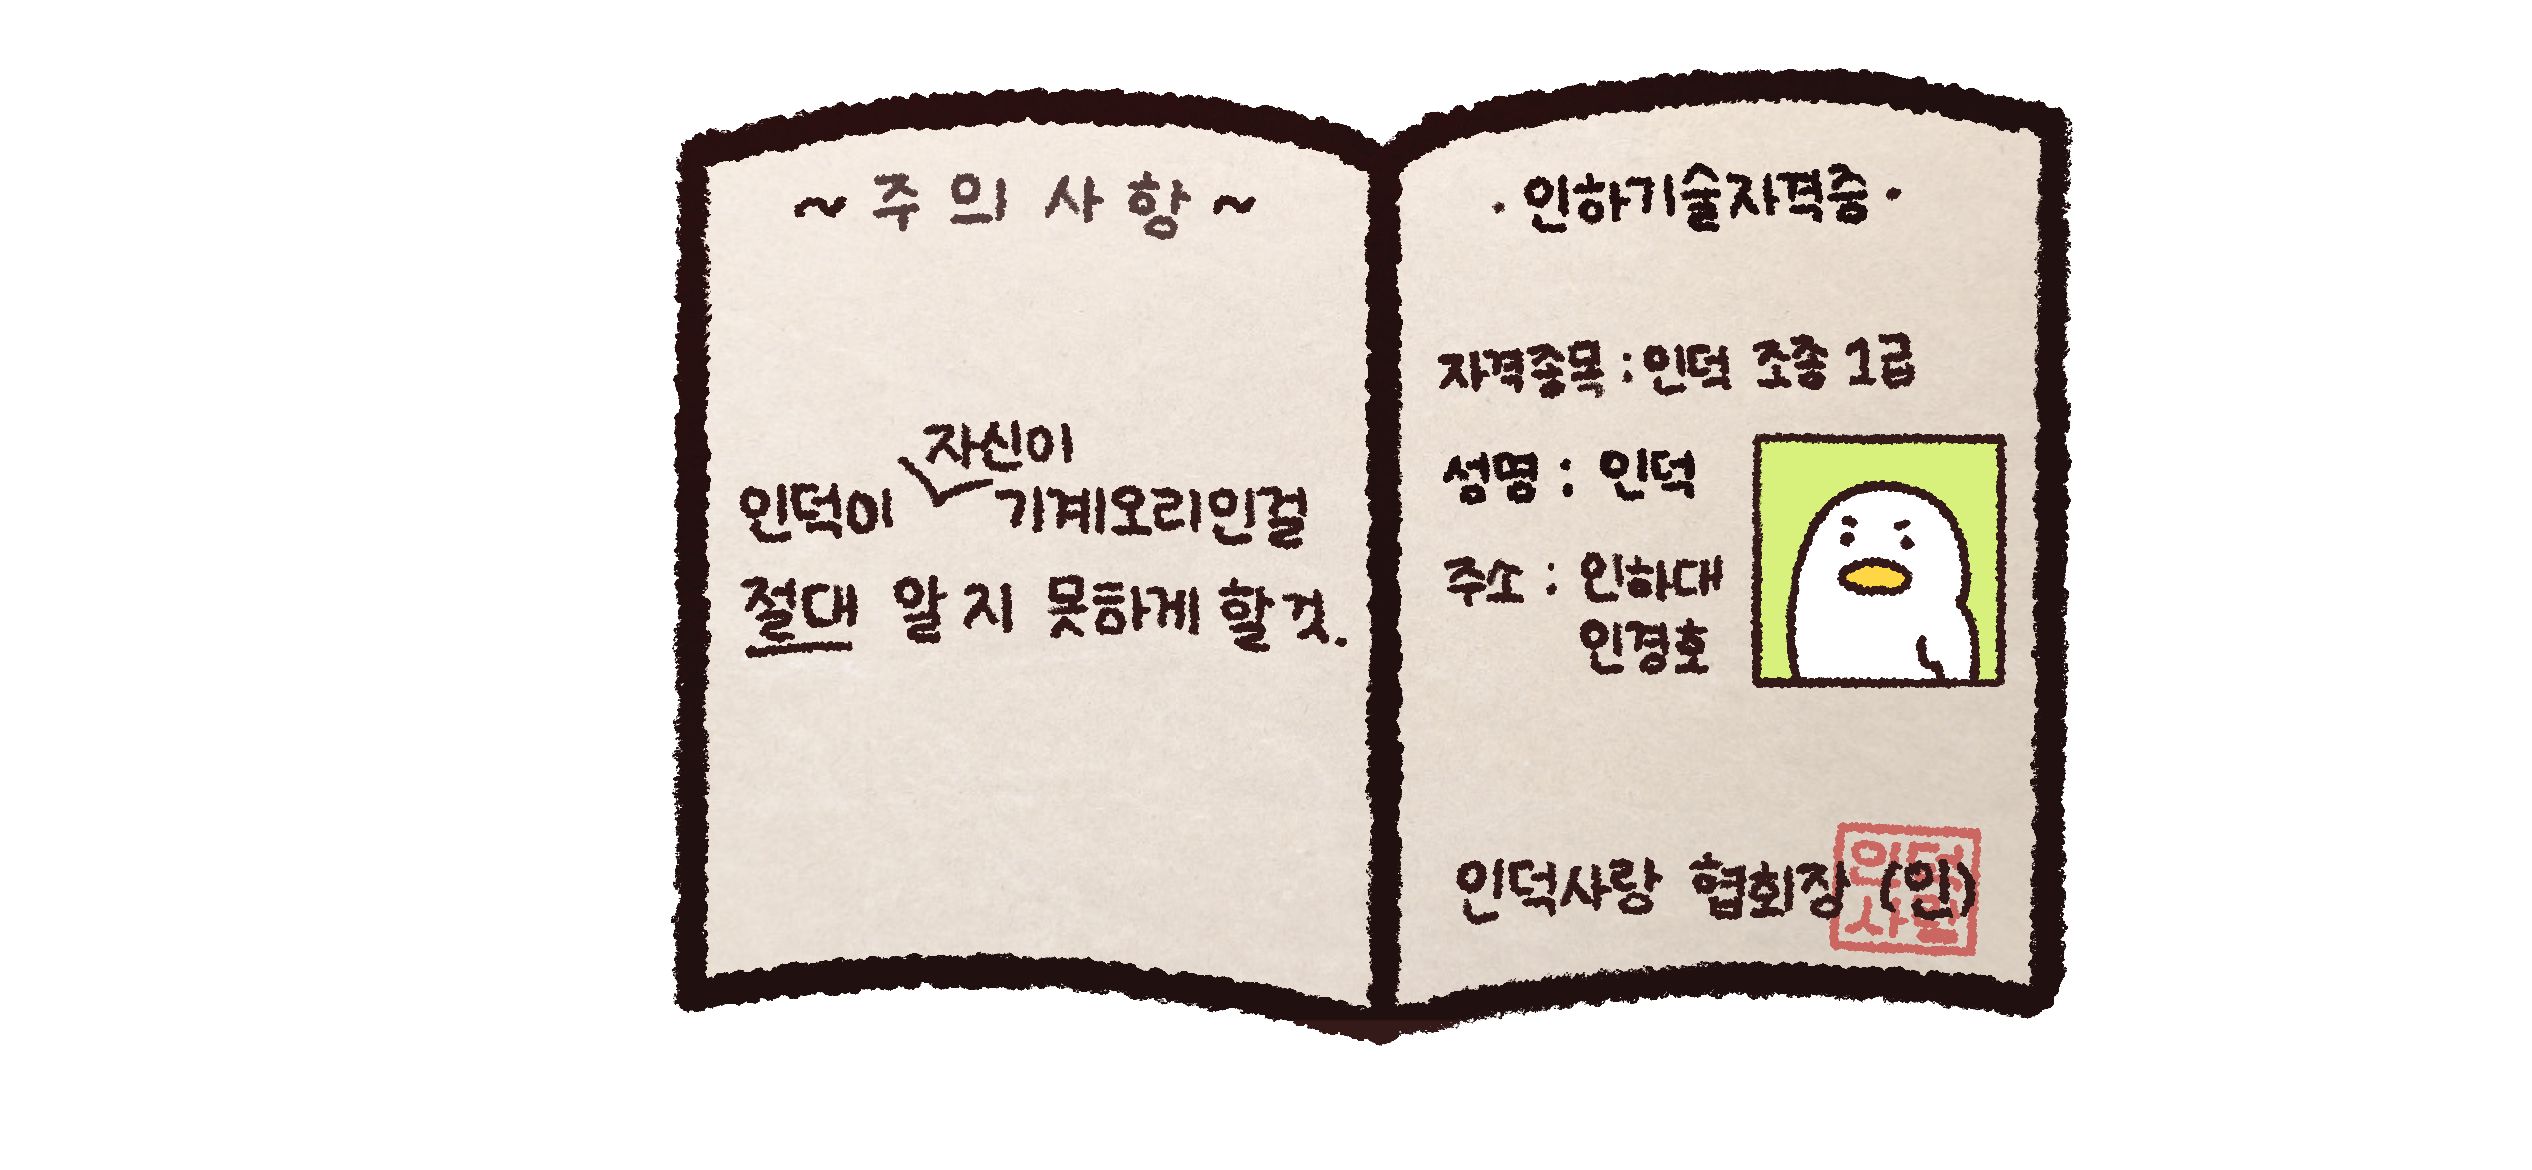 ~ 주의사항 ~
인덕이 자신이 기계오리인걸
절대 알지 못하게 할것.
· 인하기술자격증 ·
자격종목 : 인덕 조종 1급
성명 : 인덕
주소 : 인하대
인경호
인덕사랑 협회장 (인)
인덕
사랑